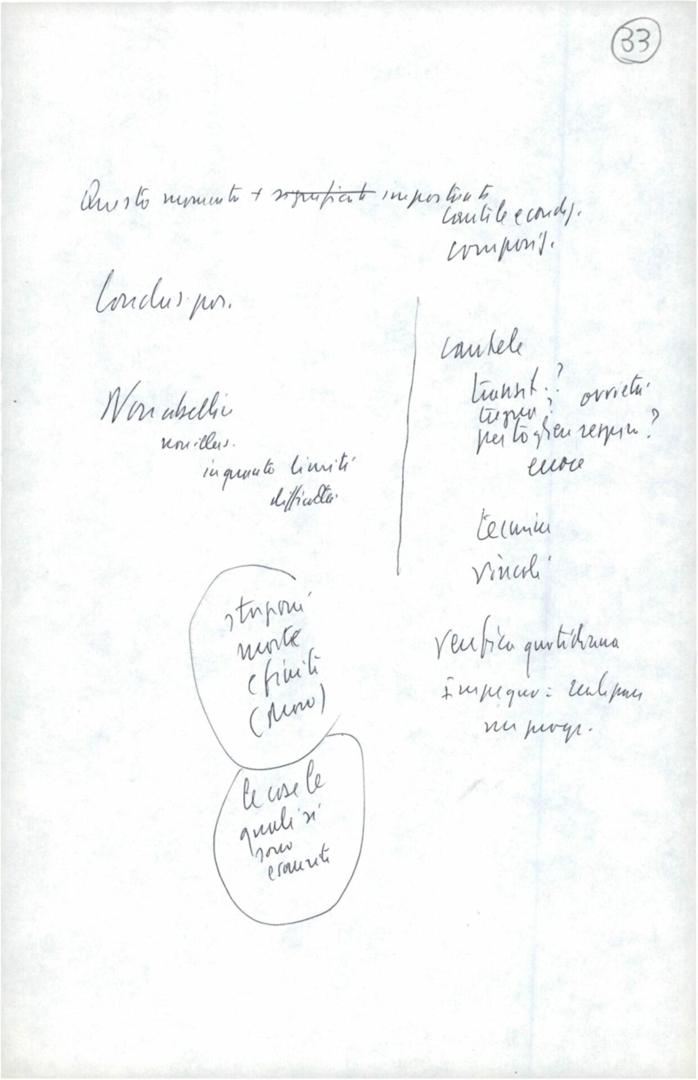 33
Questo momento + significato importante
cautele e condiz.
composiz.
Conclus. pos.
Non abbellire
non illus.
in quanto limiti
difficoltà
cautele
transit.?
tregua? ovvietà
per togliere respons.?
errore
tecnici
vincoli
verifica quotidiana
Impegno: realizzare
un progr.
stagioni
morte
e finiti
(Moro)
le cose le
quali si
sono
esaurite